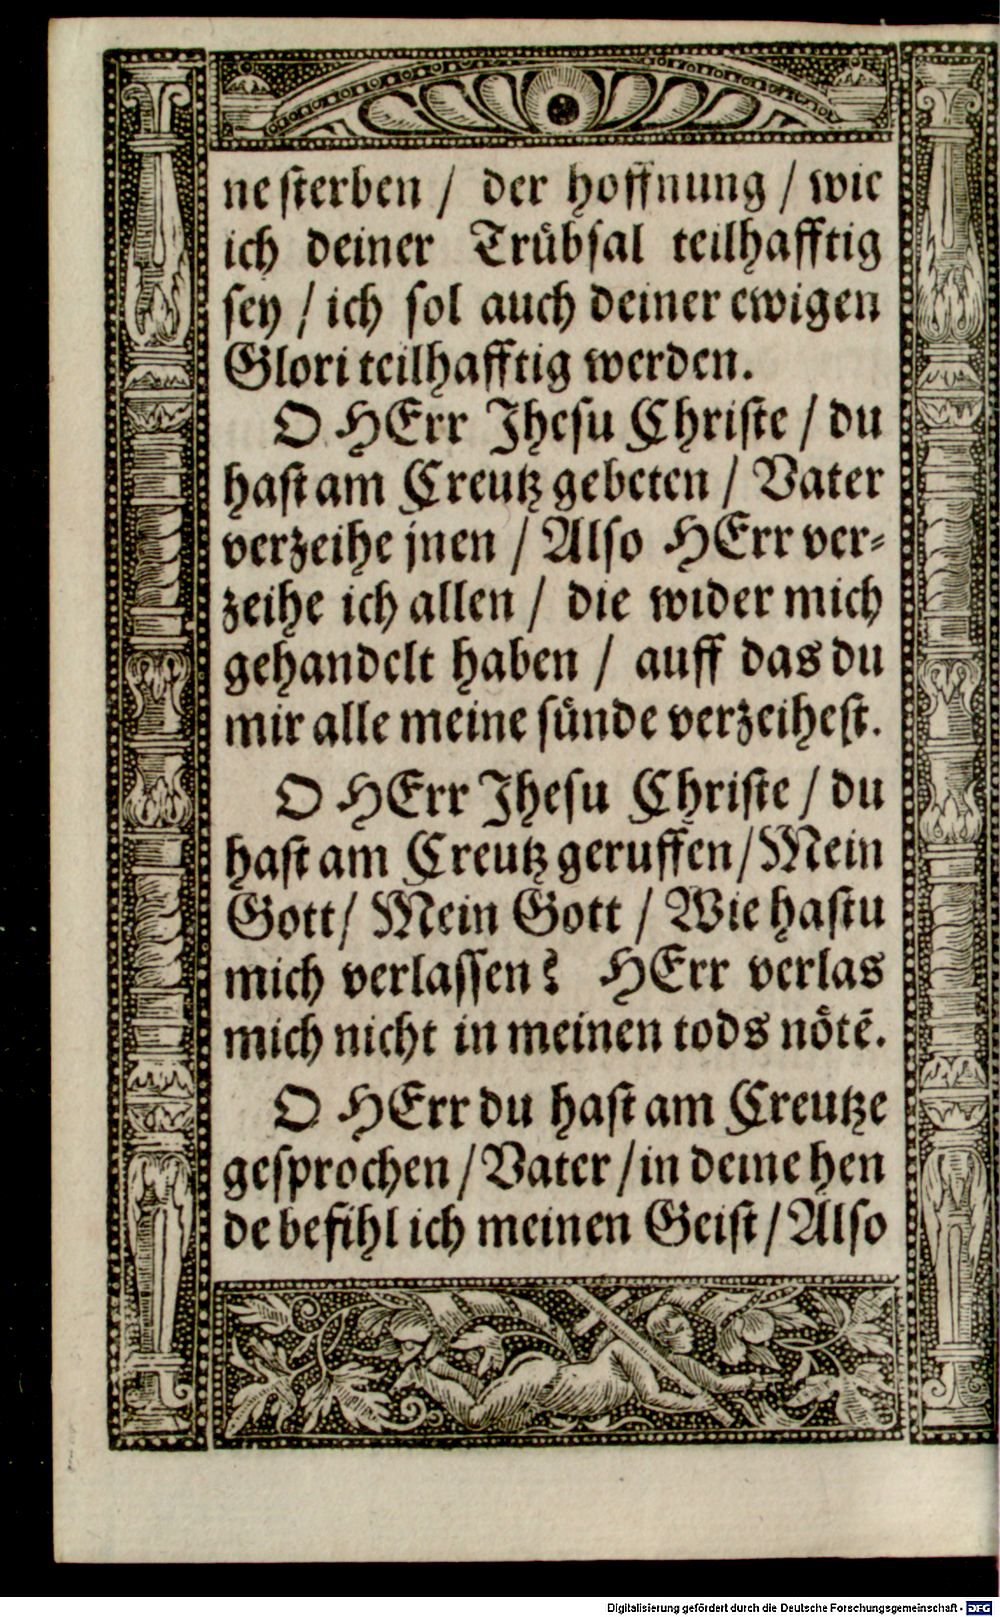 ne ſterben / der hoffnung / wie
ich deiner Trübſal teilhafftig
ſey / ich ſol auch deiner ewigen
Glori teilhafftig werden.
O HErr Jheſu Chriſte / du
haſt am Creutz gebeten / Vater
verzeihe jnen / Alſo HErr ver⸗
zeihe ich allen / die wider mich
gehandelt haben / auff das du
mir alle meine ſünde verzeiheſt.
O HErr Jheſu Chriſte / du
haſt am Creutz geruffen / Mein
Gott / Mein Gott / Wie haſtu
mich verlaſſen? HErr verlas
mich nicht in meinen tods nötē.
O HErr du haſt am Creutze
geſprochen / Vater / in deine hen
de befihl ich meinen Geiſt / Alſo
Digitalisierung gefördert durch die Deutsche Forschungsgemeinschaft - DFG